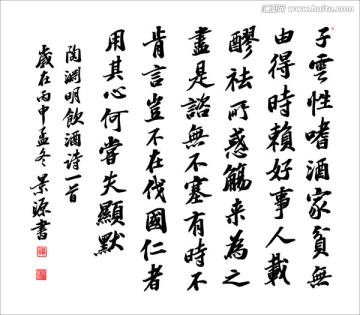 子雲性嗜酒家貧無
由得時賴好事人載
醪祛所惑觴来為之
盡是諮無不塞有時不
肯言豈不在伐國仁者
用其心何嘗失顯默
陶淵明飲酒诗一首
歲在丙申孟冬景源書
www.58pic.com